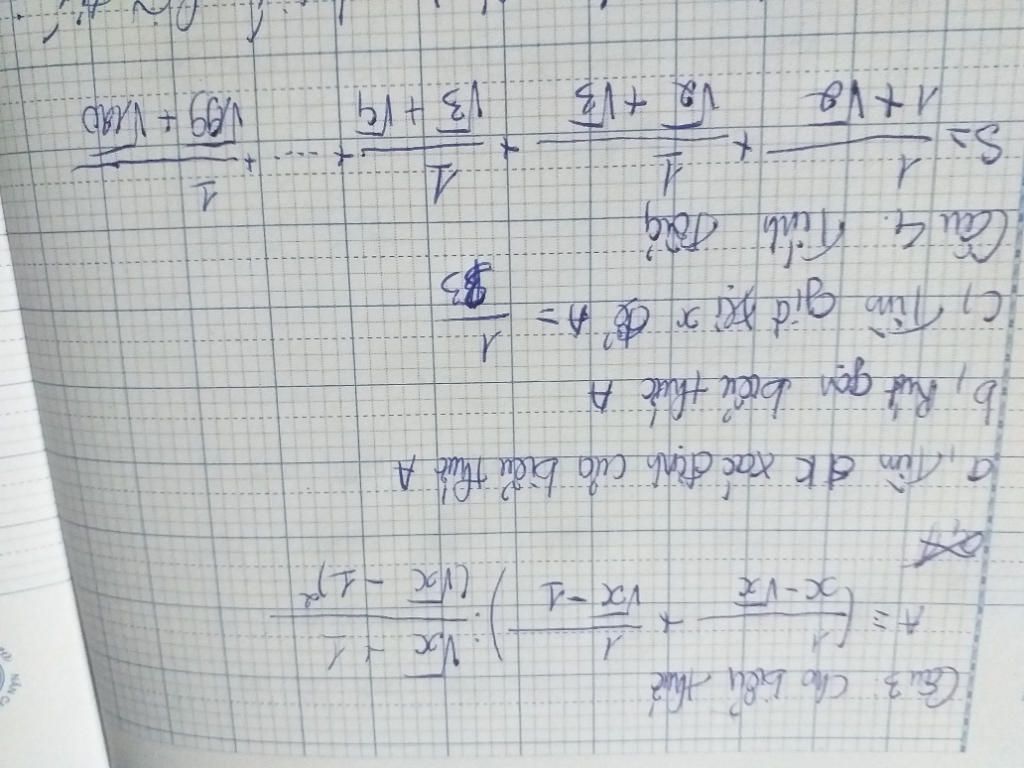 Câu 3 Cho biểu thức
A = (1/(x-√x) + 1/(√x-1)) : (√x+1)/(√x-1)²
a, Tìm đk xác định của biểu thức A
b, Rút gọn biểu thức A
c, Tìm giá trị x để A = 1/3
Câu 4. Tính tổng
S = 1/(1+√2) + 1/(√2+√3) + 1/(√3+√4) + .... + 1/(√99+√100)